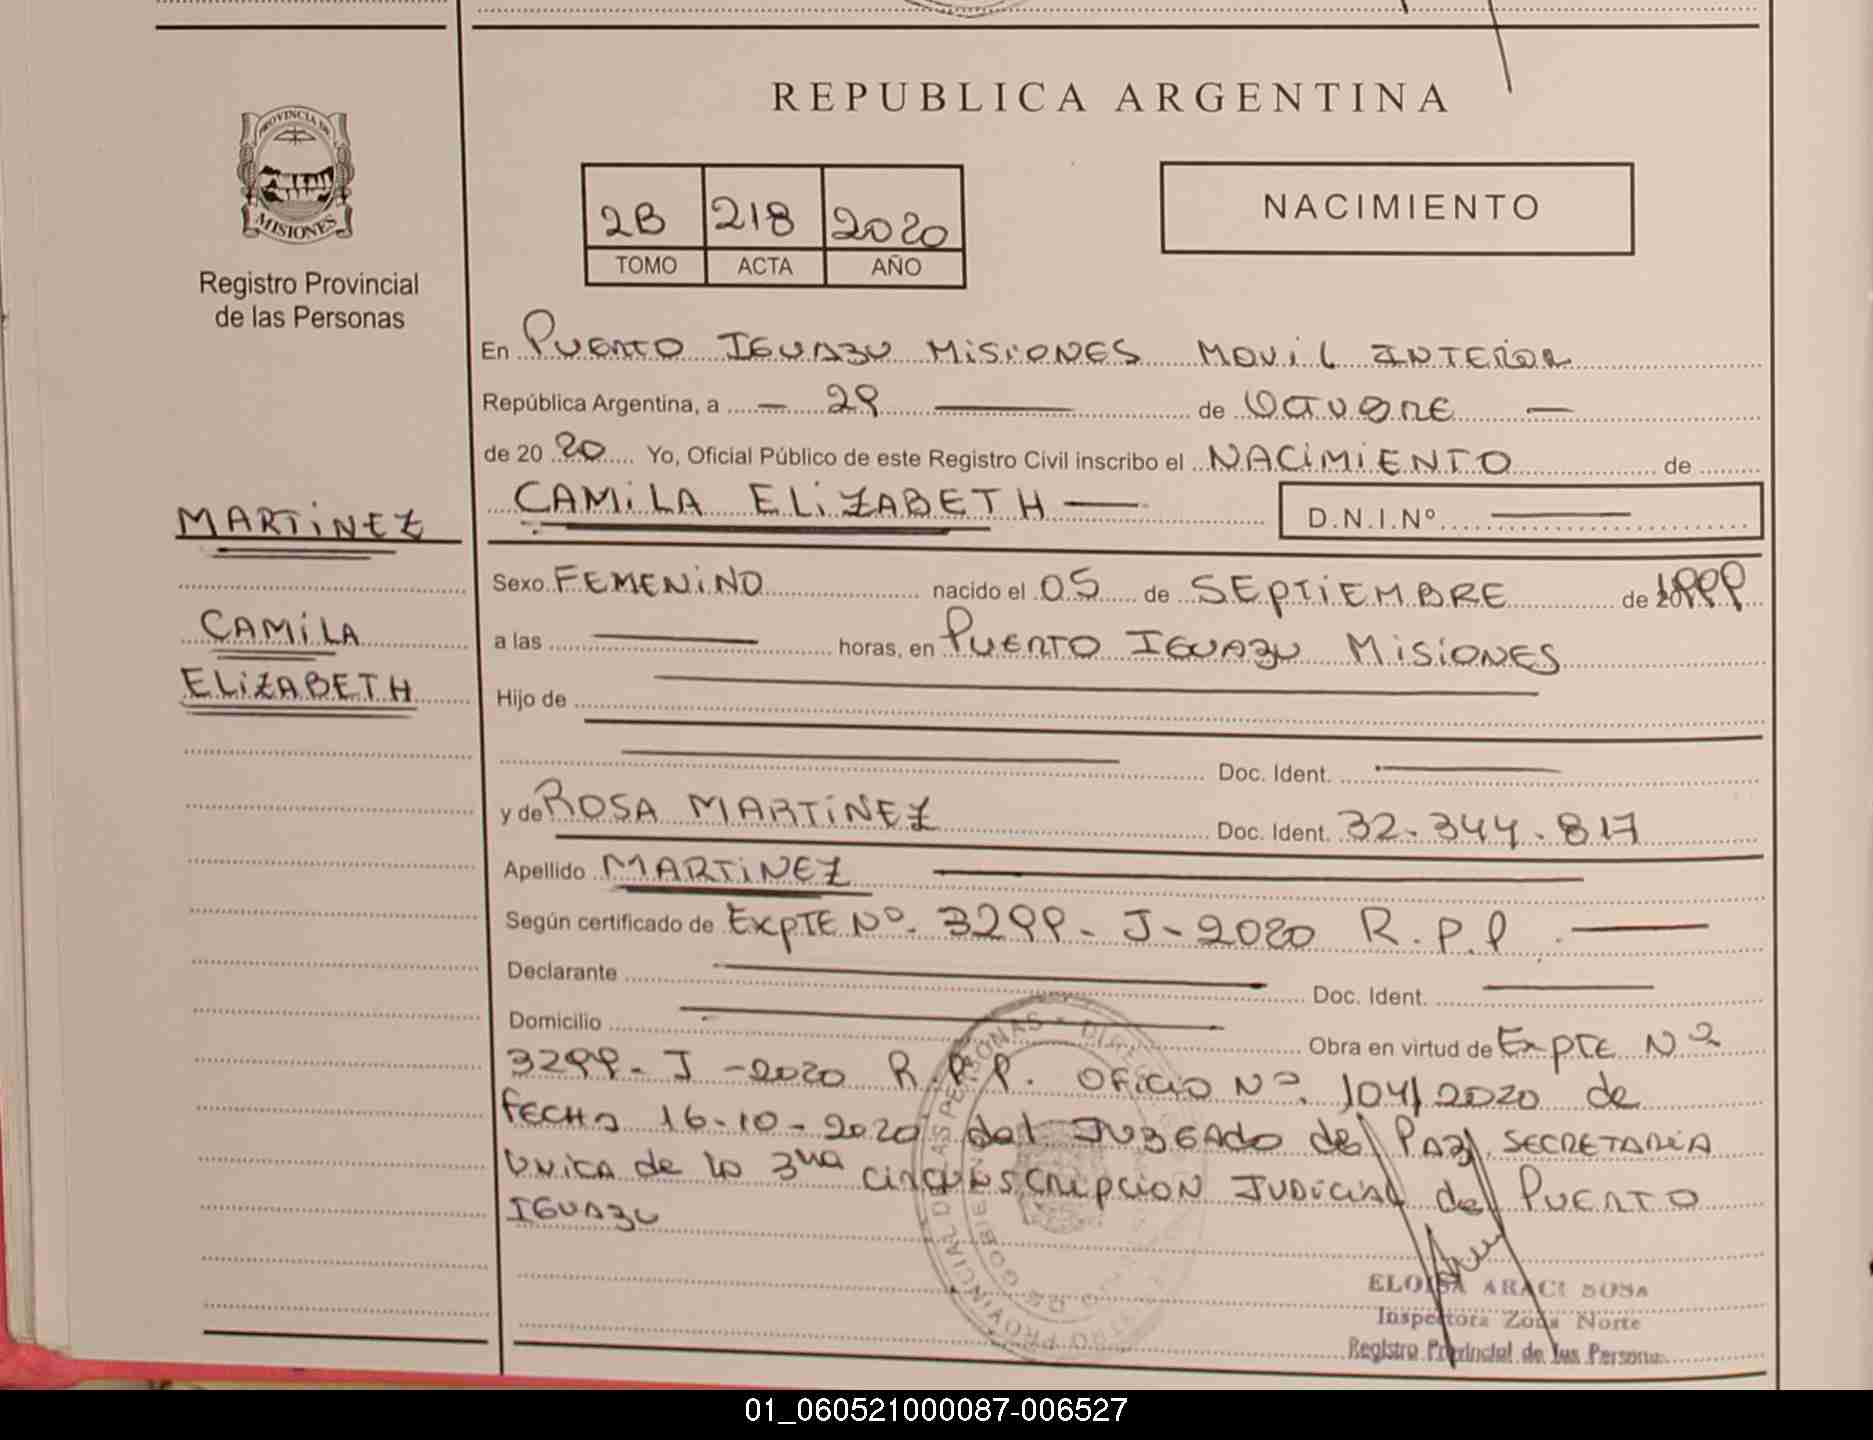 REPUBLICA ARGENTINA
PROVINCIA DE
MISIONES
Registro Provincial
de las Personas
2B 218 2020
TOMO ACTA AÑO
NACIMIENTO
En PUERTO IGUAZU MISIONES MOVIL INTERIOR
República Argentina, a — 29 — de OCTUBRE —
de 20 20 Yo, Oficial Público de este Registro Civil inscribo el NACIMIENTO de
CAMILA ELIZABETH — D.N.I.Nº —
MARTINEZ
CAMILA
ELIZABETH
Sexo FEMENINO nacido el 05 de SEPTIEMBRE de 1999
a las — horas, en PUERTO IGUAZU MISIONES
Hijo de —
— Doc. Ident. —
y de ROSA MARTINEZ Doc. Ident. 32.344.817
Apellido MARTINEZ —
Según certificado de EXPTE Nº. 3299- J-2020 R.P.P. —
Declarante — Doc. Ident. —
Domicilio — Obra en virtud de EXPTE Nº
3299- J -2020 R.P.P. OFICIO Nº. 104/2020 de
FECHA 16-10-2020 del JUZGADO de PAZ SECRETARIA
UNICA de la 3ra CIRCUNSCRIPCION JUDICIAL de PUERTO
IGUAZU
ELOISA ARACI SOSA
Inspectora Zona Norte
Registro Provincial de las Personas
01_060521000087-006527